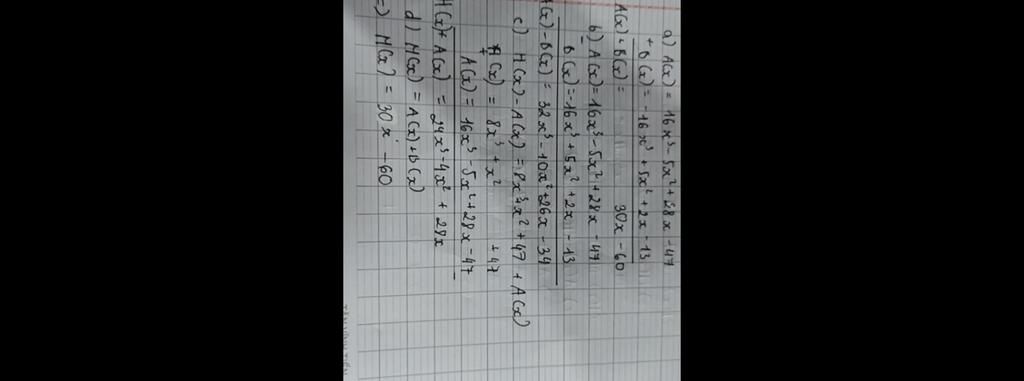 a) A(x) = 16x³ - 5x² + 28x - 47
+ B(x) = -16x³ + 5x² + 2x - 13
A(x) + B(x) = 30x - 60
b) A(x) = 16x³ - 5x² + 28x - 47
- B(x) = -16x³ + 5x² + 2x - 13
A(x) - B(x) = 32x³ - 10x² + 26x - 34
c) H(x) - A(x) = 8x³ + x² + 47 + A(x)
H(x) = 8x³ + x² + 47
+ A(x) = 16x³ - 5x² + 28x - 47
H(x) + A(x) = 24x³ - 4x² + 28x
d) H(x) = A(x) + B(x)
=) H(x) = 30x - 60